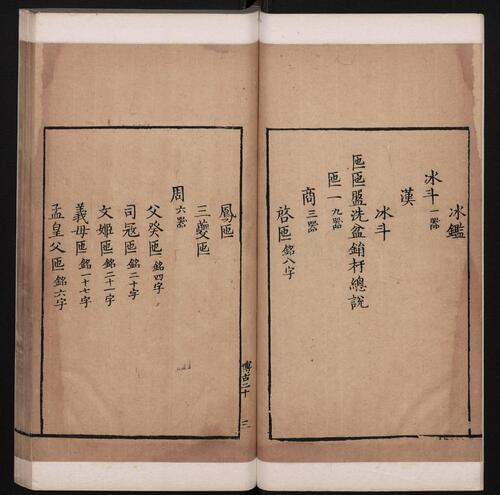 冰鑑
冰斗一器
漢
冰斗
匜匜盤洗盆鋗杅總說
匜一九器
商三器
啓匜銘八字
鳳匜
三夔匜
周六器
父癸匜銘四字
司寇匜銘二十字
文姬匜銘二十一字
義母匜銘一十七字
孟皇父匜銘六字
博古二十
三